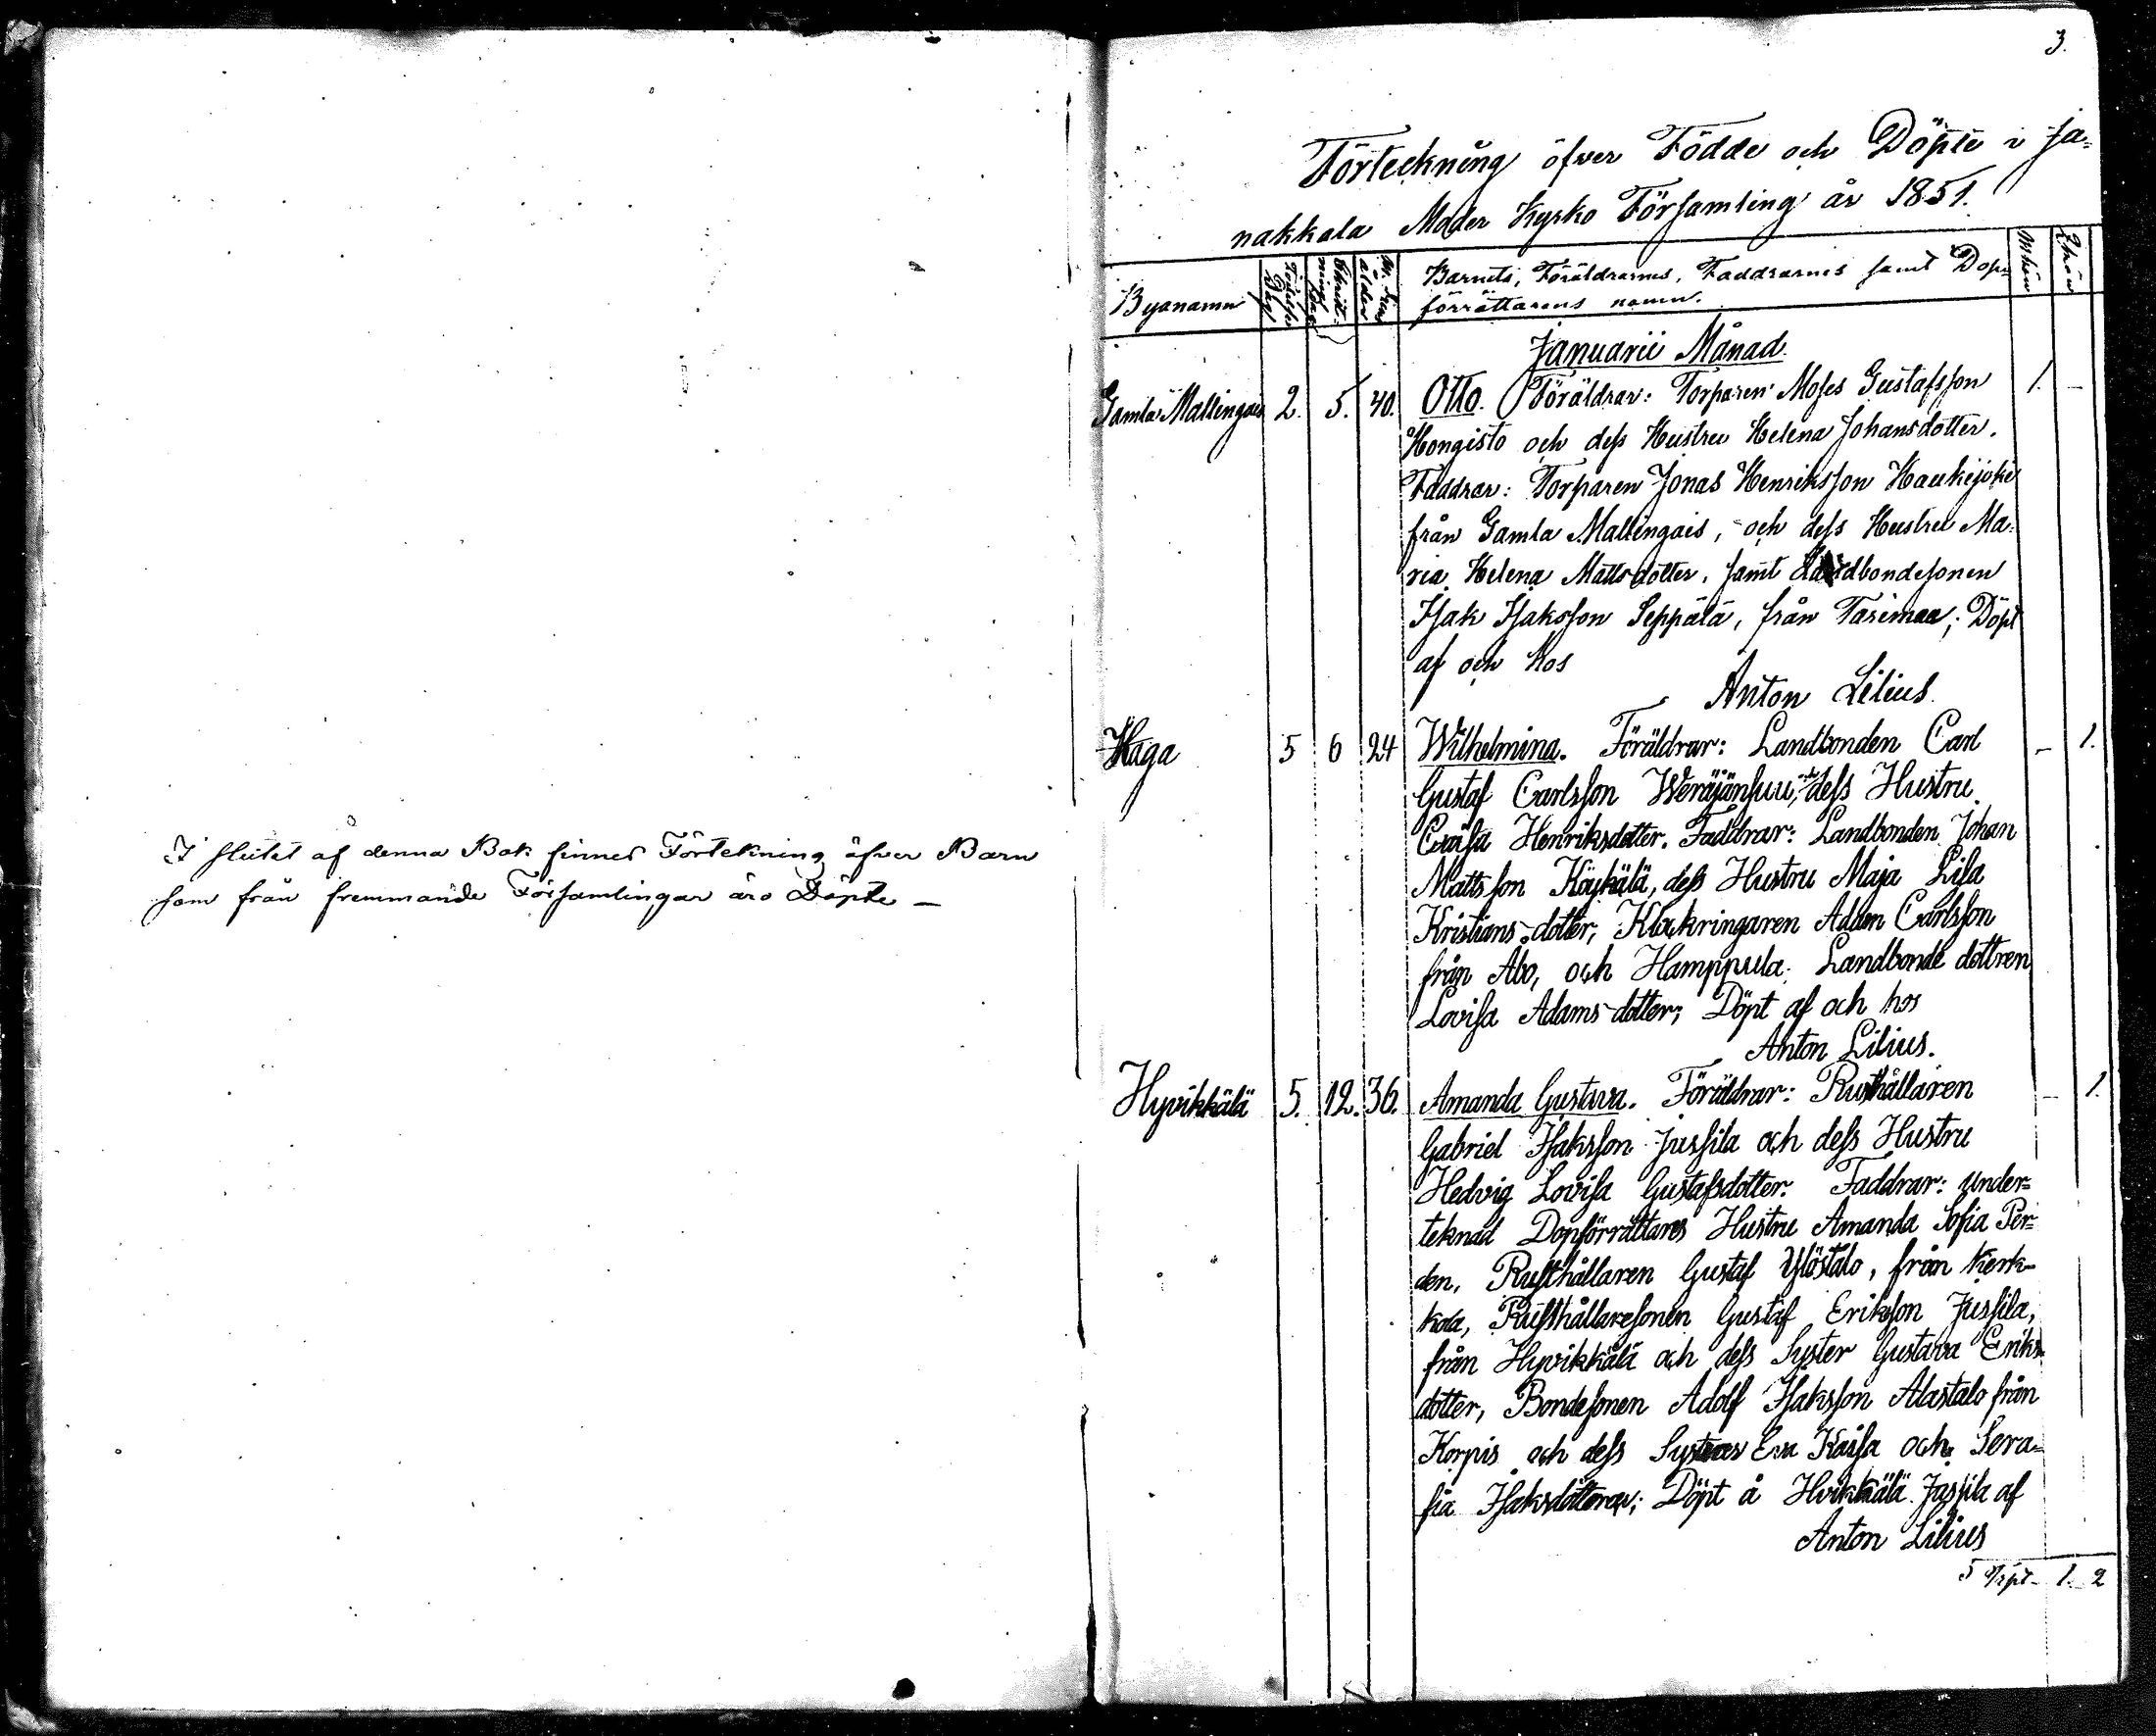 I slutet af denna Bok finnes Förtekning öfver Barn
som från fremmande Församlingar äro Döpte –
3.
Förteckning öfver Födde och Döpte i Ja=
nakkala Moder Kyrko Församling år 1851.
Byanamn
Födelse Dag
Barnets, Föräldrarnes, Faddrarnes samt Dop=
förrättarens namn.
Januarii Månad.
Gamla Mallingais 2. 5. 40. Otto. Föräldrar: Torparen Moses Gustafsson 1. –
Hongisto och dess Hustru Helena Johansdotter.
Faddrar: Torparen Jonas Henriksson Haukijoki
från Gamla Mallingais, och dess Hustru Ma=
ria Helena Mattsdotter, samt Landbondesonen
Isak Isaksson Seppälä, från Tarimaa; Döpt
af och hos
Anton Lilius.
Haga 5 6 24 Wilhelmina. Föräldrar: Landbonden Carl – 1.
Gustaf Carlsson Weräjänsuu, och dess Hustru
Henriksdotter. Faddrar: Landbonden Johan
Mattsson Köykälä, dess Hustru Maja Lisa
Kristians-dotter, Klockringaren Adam Carlsson
från Åbo, och Hamppula Landbonde dottren
Lovisa Adams-dotter; Döpt af och hos
Anton Lilius.
Hyvikkälä 5. 12. 36. Amanda Gustava. Föräldrar: Rusthållaren – 1.
Gabriel Isaksson Jussila och dess Hustru
Hedvig Lovisa Gustafsdotter. Faddrar: Under=
teknad Dopförrättares Hustru Amanda Sofia Per=
den, Rusthållaren Gustaf Ylöstalo, från Kerk=
kola, Rusthållaresonen Gustaf Eriksson Jussila,
från Hyvikkälä och dess Syster Gustava Eriks=
dotter, Bondesonen Adolf Isaksson Alastalo från
Korpis och dess Systrar Eva Kaisa och Sera=
fia Isaksdöttrar; Döpt å Hvikkälä Jussila af
Anton Lilius
1. 2